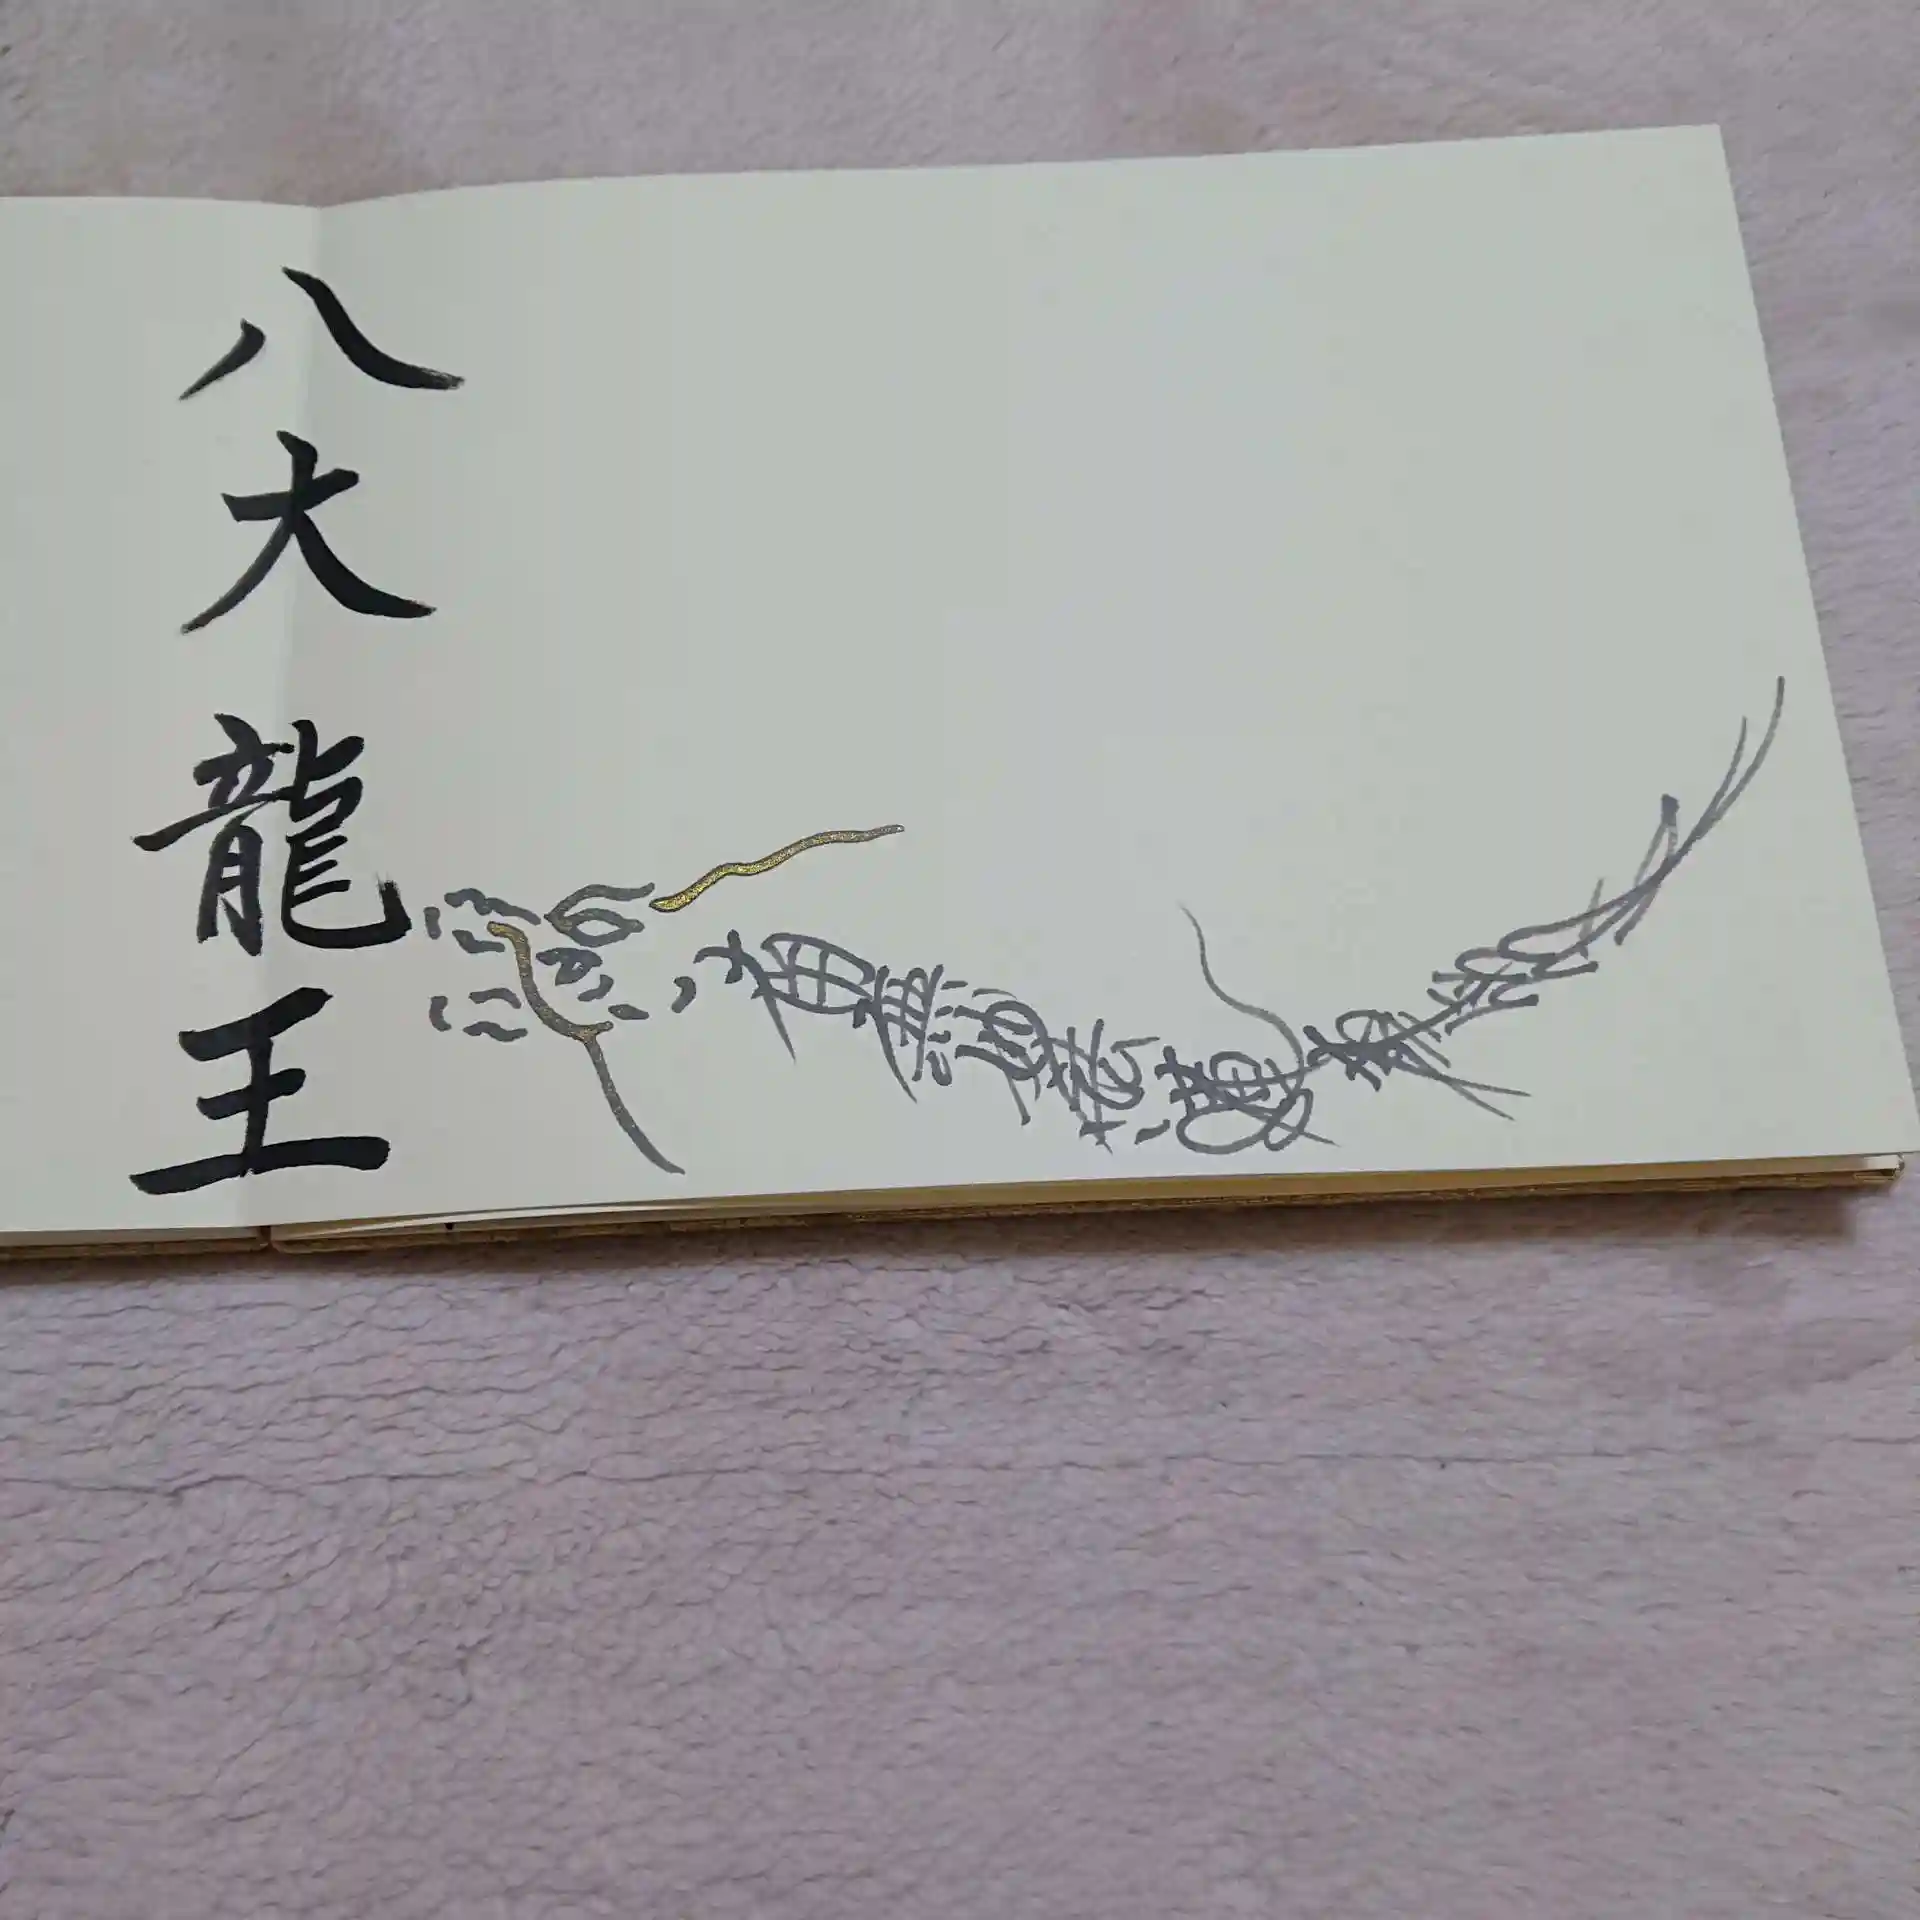 八大龍王